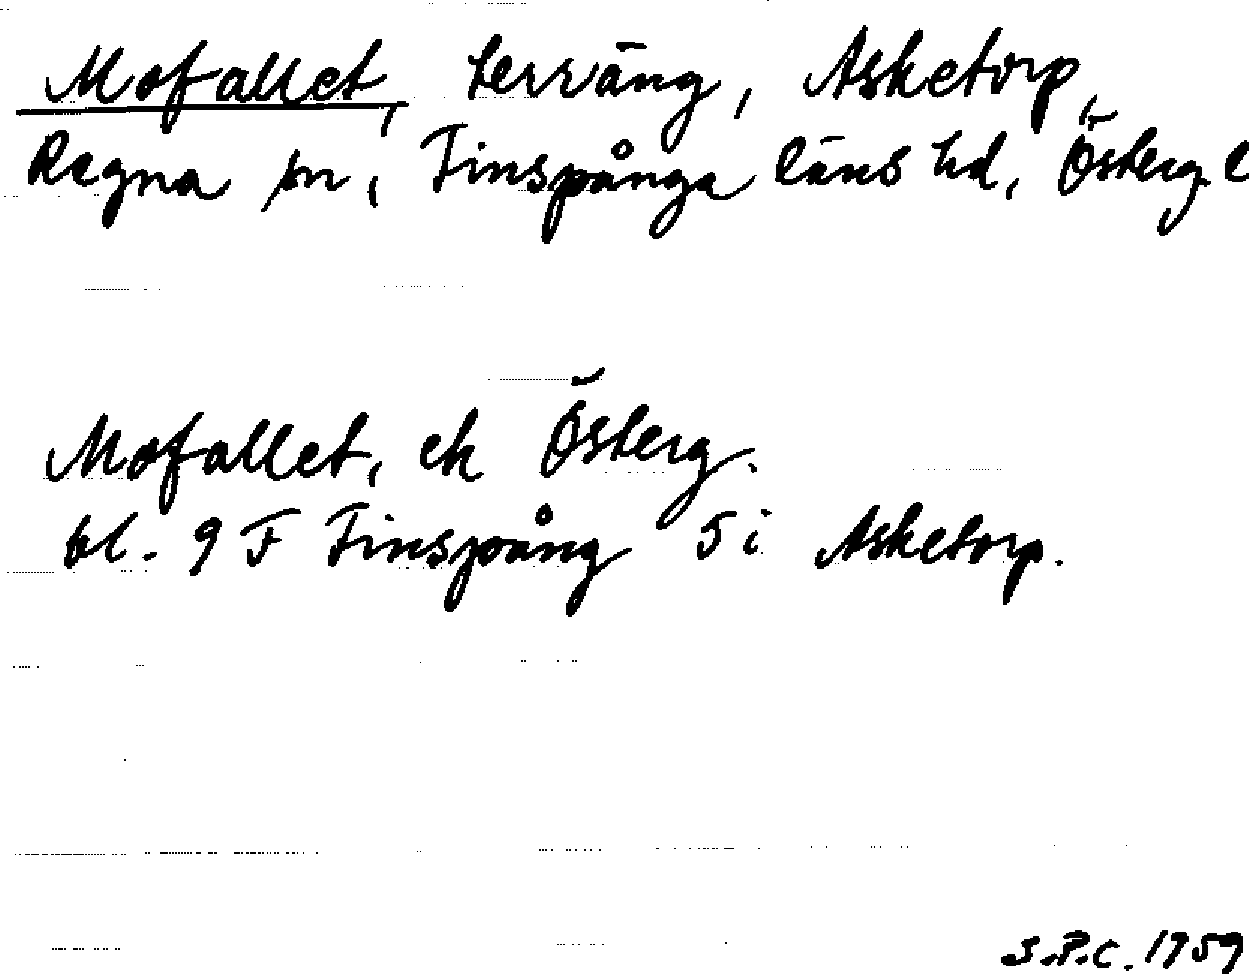 Mofallet, terräng, Asketorp,
Regna sn, Finspånga läns hd, Österg. l
Mofallet, ek Österg.
bl. 9 F Finspång 5 i Asketorp.
S.P.C. 1959